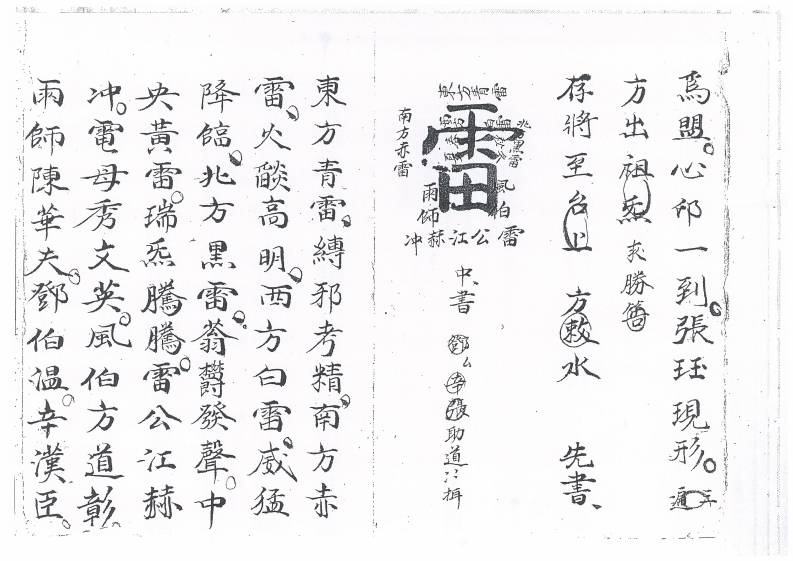 為盟。心印一到。張珏現形。三遍
方出祖炁
存將至召上方敕水 先書、
東方青雷
南方赤雷
雷
黑雷
風伯
雨師
雷公江赫冲
中書
鄧 辛張助道
東方青雷。縛邪考精。南方赤
雷。火燄高明。西方白雷。威猛
降臨。北方黑雷。蓊欎發聲。中
央黃雷。瑞炁騰騰。雷公江赫
冲。電母秀文英。風伯方道彰。
雨師陳華夫。鄧伯溫。辛漢臣。